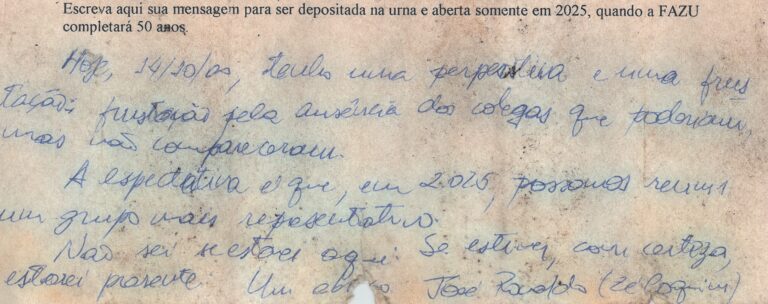 Escreva aqui sua mensagem para ser depositada na urna e aberta somente em 2025, quando a FAZU
completará 50 anos.
Hoje, 14/10/00, tenho uma perspectiva e uma frus
tação: frustação pela ausência dos colegas que poderiam,
mas não compareceram.
A espectativa é que, em 2.025, possamos reunir
um grupo mais representativo.
Não sei se estarei aqui. Se estiver, com certeza,
estarei presente. Um abraço José Ronaldo (Zé